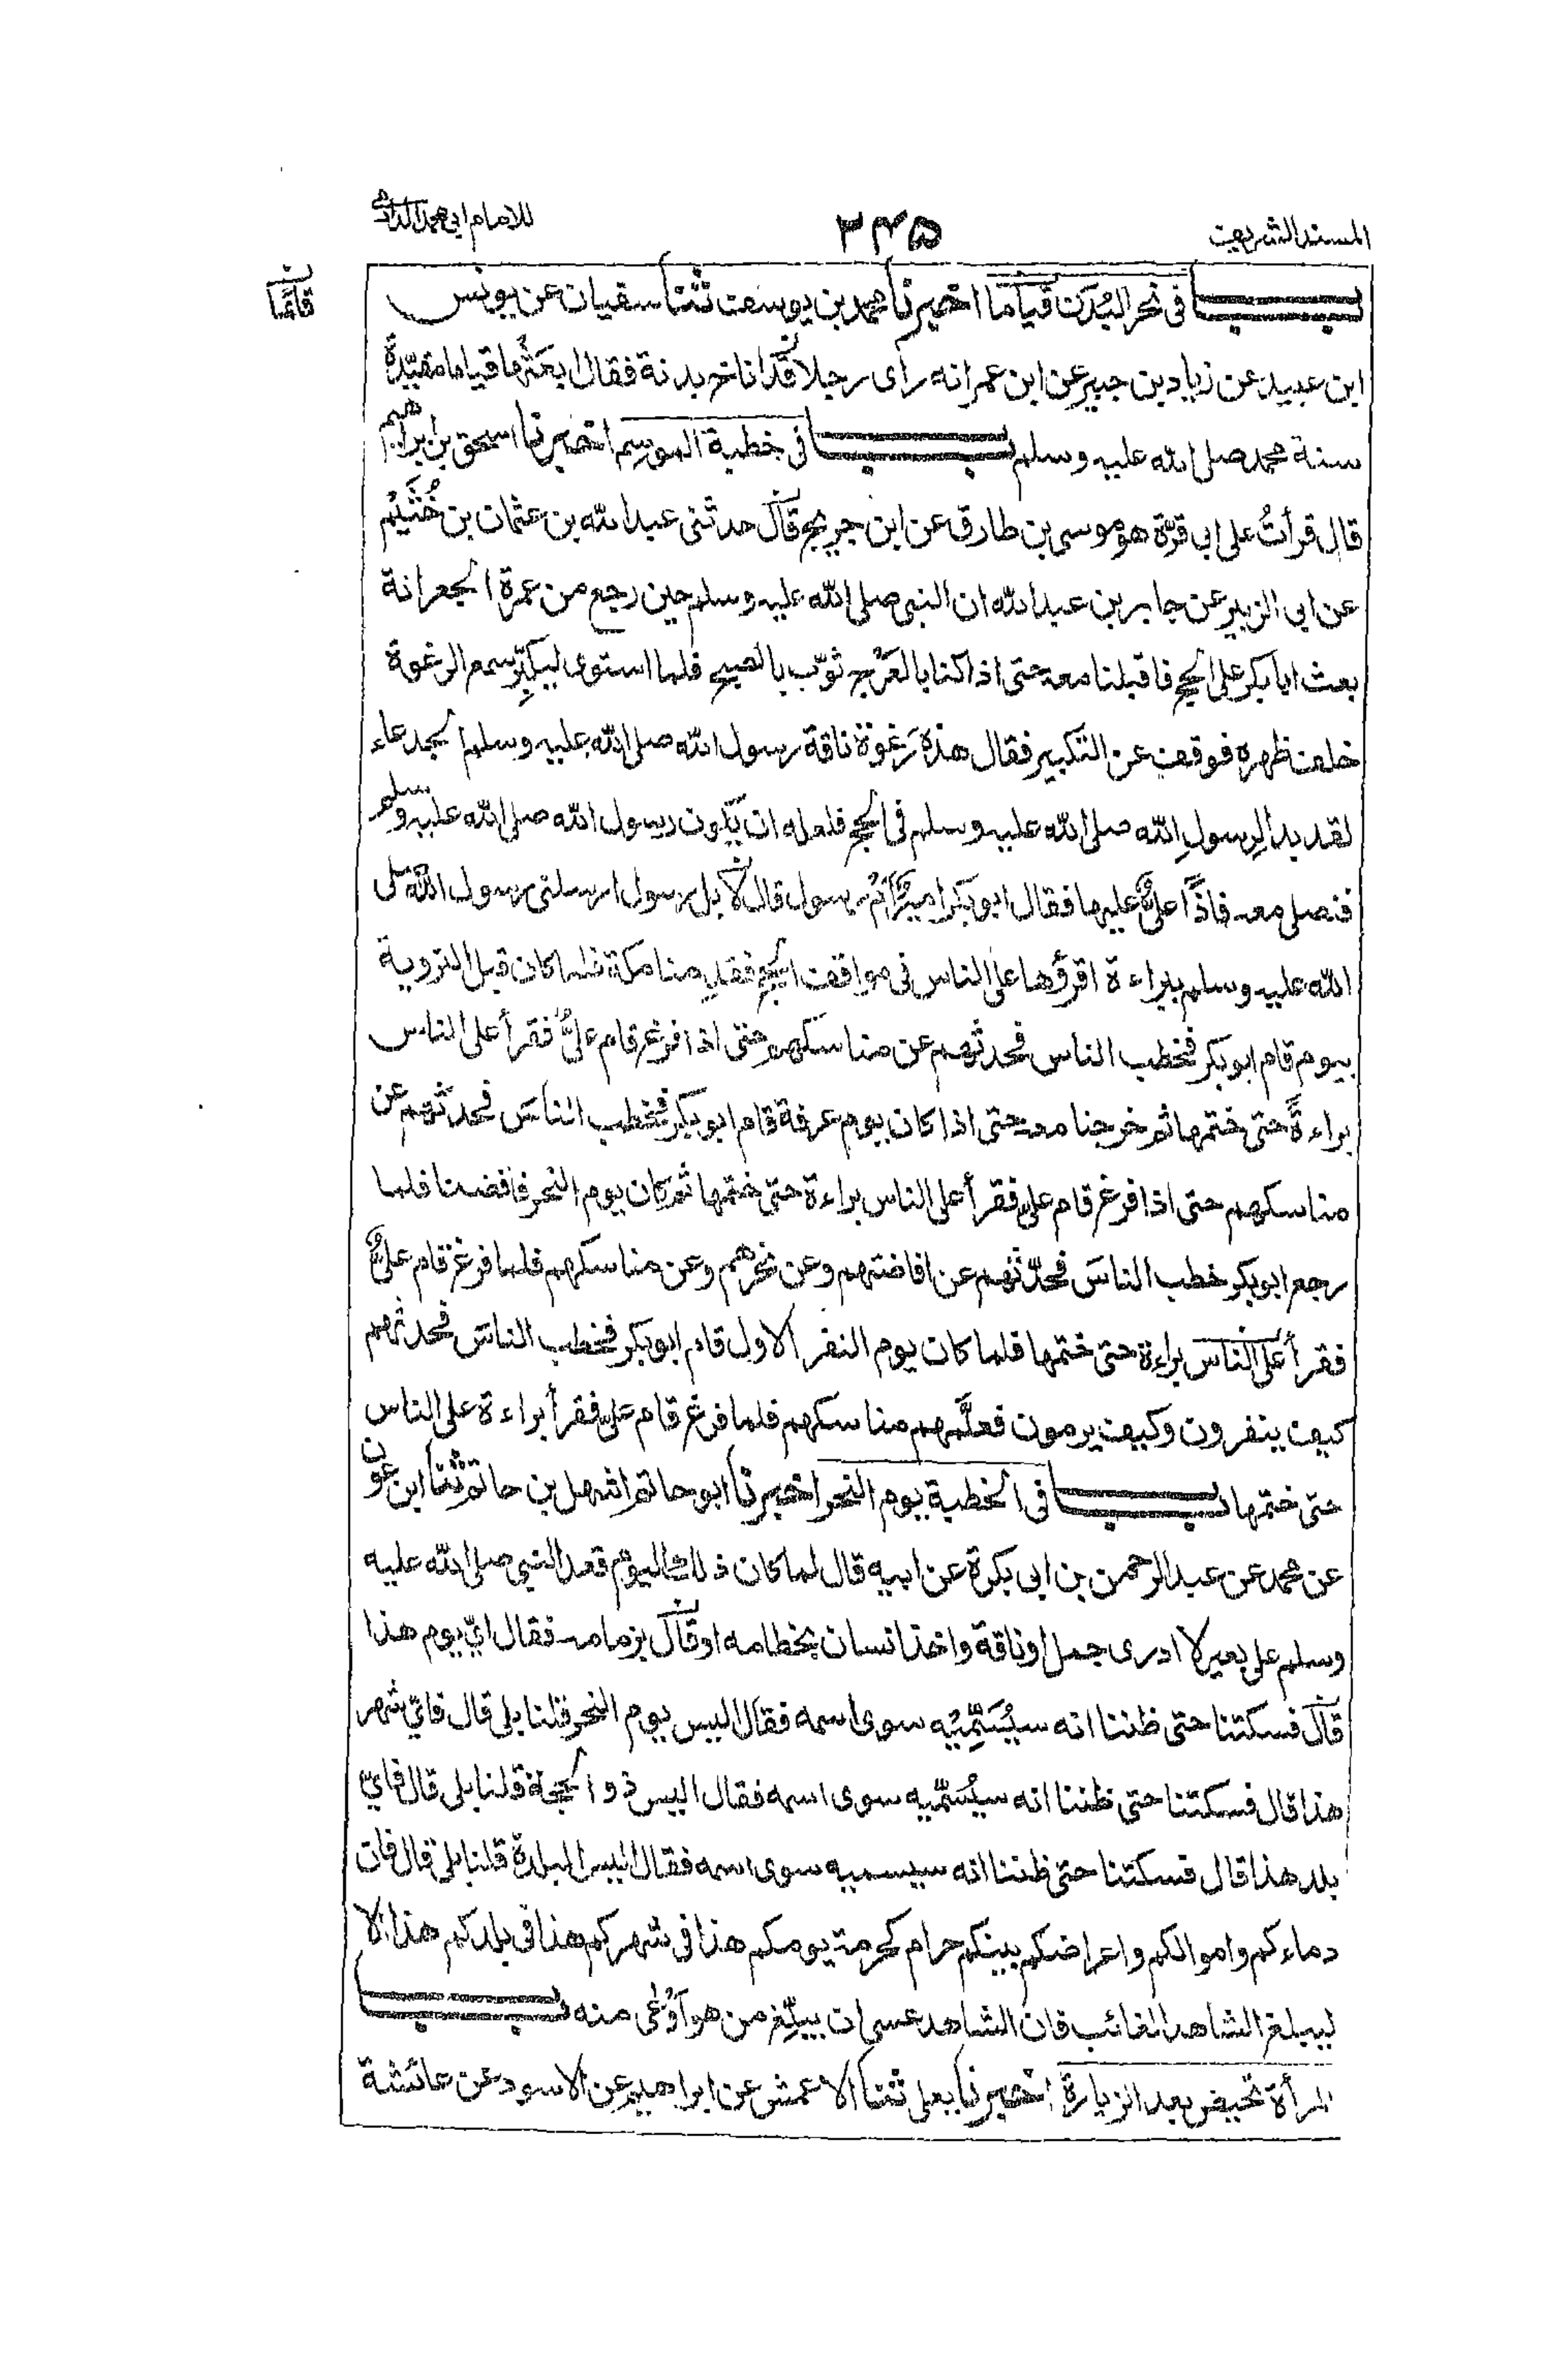 المسند الشريف
٢٤٥
للامام ابي محمد الدارمي
ن
قائمًا
باب في نحر البُدن قيامًا اخبرنا محمد بن يوسف ثنا سفيان عن يونس
ابن عبيد عن زياد بن جبير عن ابن عمر انه راى رجلا قد اناخ بدنة فقال ابعثها قياما مقيّدةً
سنة محمد صلى الله عليه وسلم باب في خطبة الموسم اخبرنا اسحق بن ابراهيم
قال قرأتُ على ابي قرّة هو موسى بن طارق عن ابن جريج قال حدثني عبد الله بن عثمان بن خُثَيْم
عن ابي الزبير عن جابر بن عبد الله ان النبي صلى الله عليه وسلم حين رجع من عمرة الجعرانة
بعث ابا بكر على الحج فاقبلنا معه حتى اذا كنا بالعَرْج ثوّب بالصبح فلما استوى ليكبّر سمع الرغوة
خلف ظهره فوقف عن التكبير فقال هذه رَغوة ناقة رسول الله صلى الله عليه وسلم الجدعاء
لقد بدا لرسول الله صلى الله عليه وسلم في الحج فلعله ان يكون رسول الله صلى الله عليه وسلم
فنصلي معه فاذا عليٌّ عليها فقال ابو بكر اميرٌ ام رسول قال لا بل رسول ارسلني رسول الله صلى
الله عليه وسلم ببراءة اقرؤها على الناس في مواقف الحج فقدمنا مكة فلما كان قبل التروية
بيوم قام ابو بكر فخطب الناس فحدثهم عن مناسكهم حتى اذا فرغ قام عليٌّ فقرأ على الناس
براءةً حتى ختمها ثم خرجنا معه حتى اذا كان يوم عرفة قام ابو بكر فخطب الناسَ فحدثهم عن
مناسكهم حتى اذا فرغ قام علي فقرأ على الناس براءة حتى ختمها ثم كان يوم النحر فافضنا فلما
رجع ابو بكر خطب الناسَ فحدّثهم عن افاضتهم وعن نحرهم وعن مناسكهم فلما فرغ قام عليٌّ
فقرأ على الناس براءة حتى ختمها فلما كان يوم النفر الاول قام ابو بكر فخطب الناسَ فحدثهم
كيف ينفرون وكيف يرمون فعلَّمهم مناسكهم فلما فرغ قام علي فقرأ براءة على الناس
حتى ختمها باب في الخطبة يوم النحر اخبرنا ابو حاتم اشهل بن حاتم ثنا ابن عون
عن محمد عن عبد الرحمن بن ابي بكرة عن ابيه قال لما كان ذلك اليوم قعد النبي صلى الله عليه
وسلم على بعير لا ادري جمل او ناقة واخذ انسان بخطامه او قال بزمامه فقال ايّ يوم هذا
قال فسكتنا حتى ظننا انه سيُسَمِّيه سوى اسمه فقال اليس يوم النحر قلنا بلى قال فايّ شهر
هذا قال فسكتنا حتى ظننا انه سيُسَمّيه سوى اسمه فقال اليس ذو الحجة قلنا بلى قال فايّ
بلد هذا قال فسكتنا حتى ظننا انه سيسميه سوى اسمه فقال اليس البلدة قلنا بلى قال فان
دماءكم واموالكم واعراضكم بينكم حرام كحرمة يومكم هذا في شهركم هذا في بلدكم هذا الا
ليبلغ الشاهد الغائب فان الشاهد عسى ان يبلّغ من هو اَوْعٰى منه باب
المرأة تحيض بعد الزيارة اخبرنا يعلى ثنا الاعمش عن ابراهيم عن الاسود عن عائشة